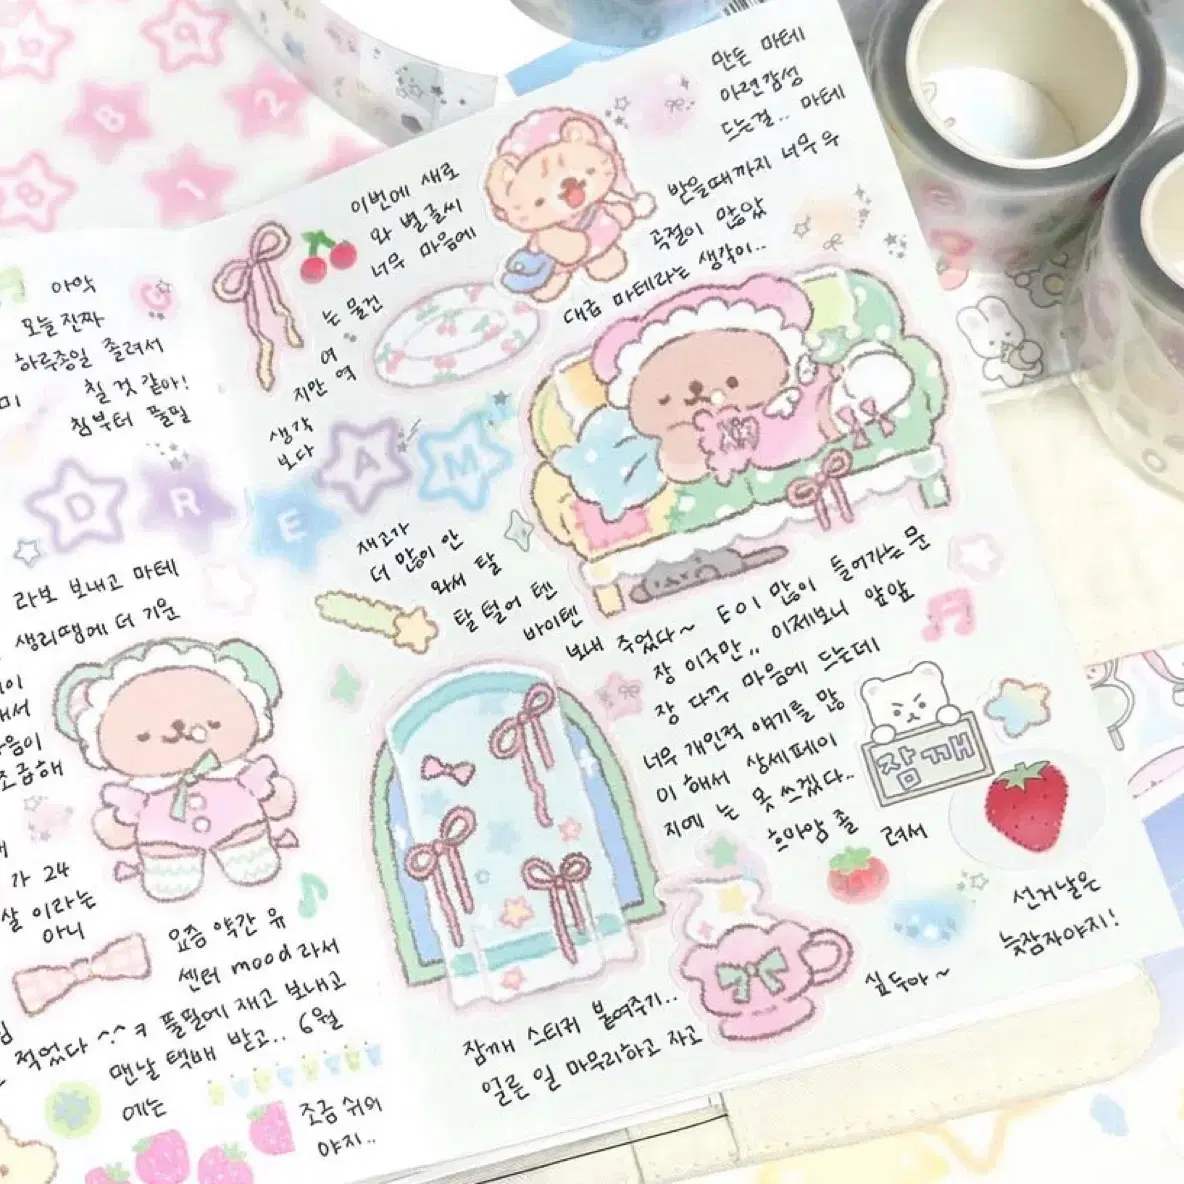 아악
오늘 진짜
하루종일 졸려서
미칠 것 같아!
첨부터 풀필
라보 보내고 마테
생리땜에 더 기운
가 24
살 이라는
아니
요즘 약간 유
센터 mood 라서
적었다 ^^ㅋ 풀필에 재고 보내고
맨날 택배 받고.. 6월
에는
조금 쉬어
야지..
D R E A M
이번에 새로
와 별글씨
너무 마음에
는 물건
지만 여
역
생각
보다
재고가
더 많이 안
와서 탈
탈 털어 텐
바이텐
보내 주었다~
만든 마테
아련감성
드는걸.. 마테
받을때까지 너무 우
곡절이 많았
대급 마테라는 생각이..
토이 많이 들어가는 문
장 이구만,, 이제보니 앞앞
장 다꾸 마음에 드는데
너무 개인적 얘기를 많
이 해서 상세페이
지에 는 못 쓰겠다..
흐아앙 졸
려서
잠깨
선거날은
늦잠자야지!
잠깨 스티커 붙여주기..
얼른 일 마무리하고 자고
싶두아~
8
2
1